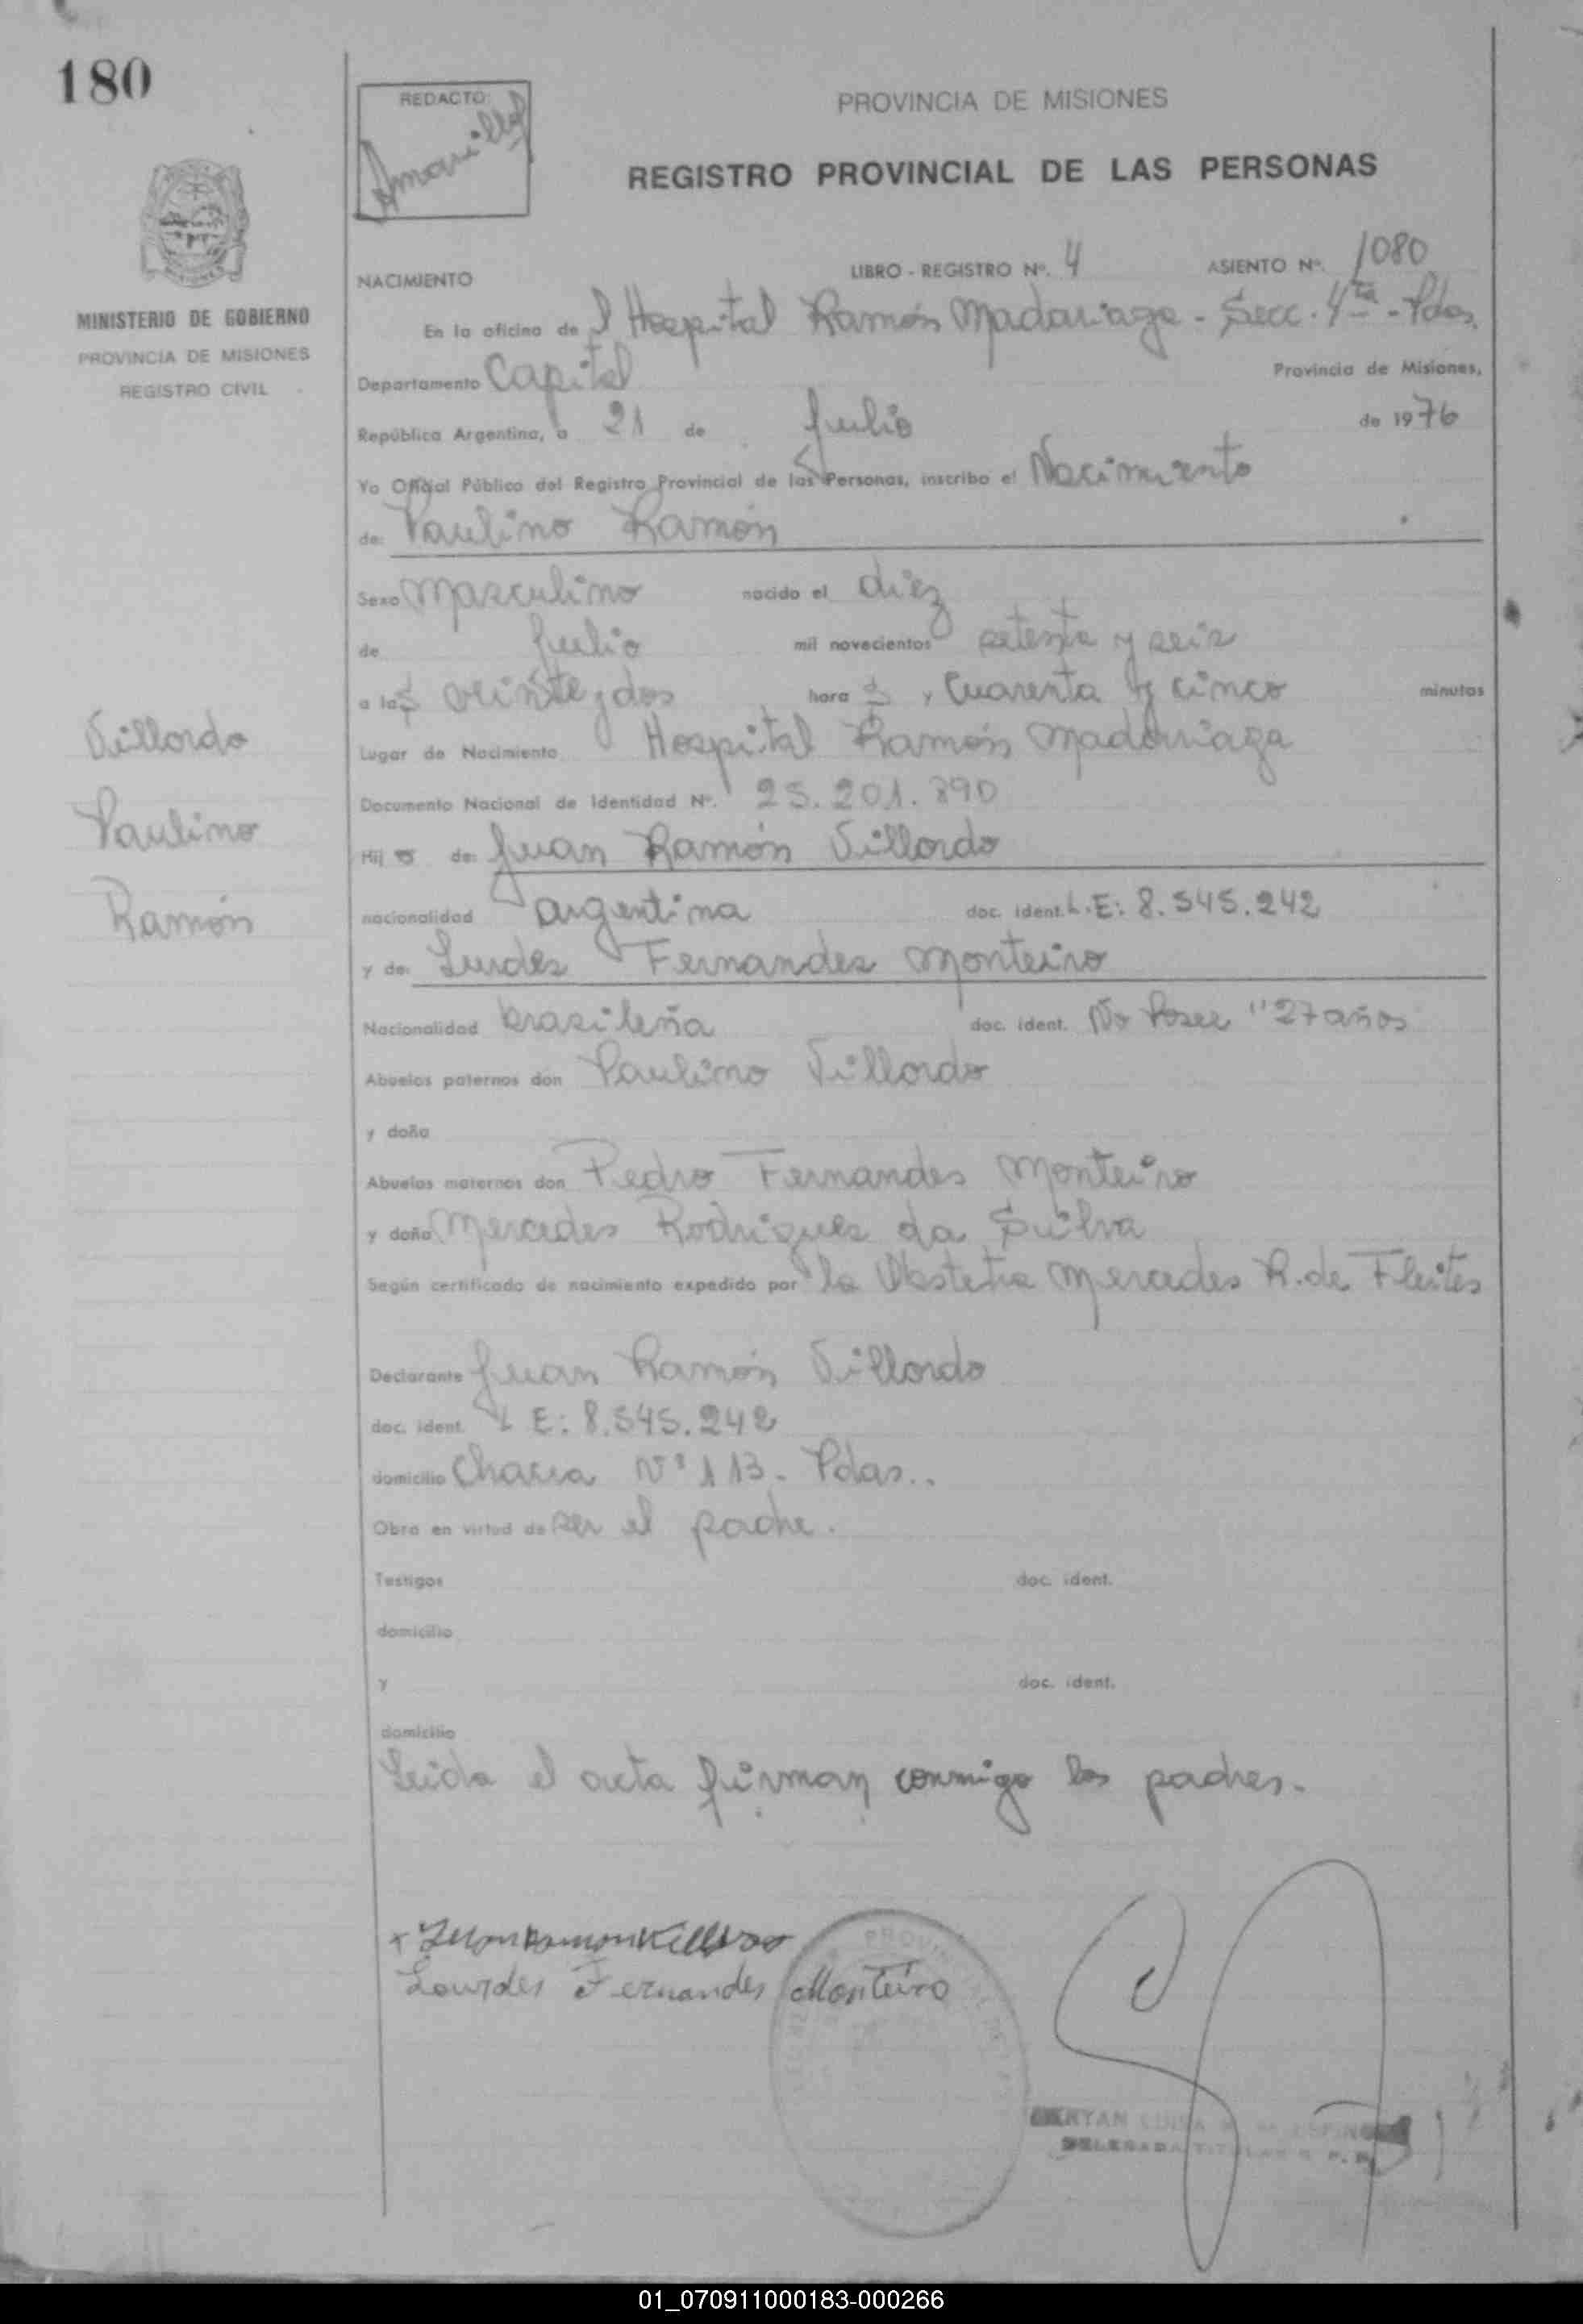 180
REDACTO:
Amarilla
PROVINCIA DE MISIONES
REGISTRO PROVINCIAL DE LAS PERSONAS
MINISTERIO DE GOBIERNO
PROVINCIA DE MISIONES
REGISTRO CIVIL
NACIMIENTO LIBRO - REGISTRO Nº. 4 ASIENTO Nº. 1080
En la oficina del Hospital Ramón Madariaga - Secc. 4ta - Pdas.
Departamento Capital Provincia de Misiones,
República Argentina, a 21 de Julio de 1976
Yo Oficial Público del Registro Provincial de las Personas, inscribo el Nacimiento
de: Paulino Ramón
Sexo Masculino nacido el diez
de Julio mil novecientos setenta y seis
a las veinte y dos hora s y Cuarenta y cinco minutos
Lugar de Nacimiento Hospital Ramón Madariaga
Documento Nacional de Identidad Nº. 25.201.890
Hijo de: Juan Ramón Villordo
nacionalidad argentina doc. ident. L.E: 8.545.242
y de: Lurdes Fernandes Monteiro
Nacionalidad brasileña doc. ident. No Posee "27 años
Abuelos paternos don Paulino Villordo
y doña
Abuelos maternos don Pedro Fernandes Monteiro
y doña Mercedes Rodrigues da Silva
Según certificado de nacimiento expedido por la Obstetra Mercedes R. de Fleites
Declarante Juan Ramón Villordo
doc. ident. L E: 8.545.242
domicilio Charia Nº 113 - Pdas..
Obra en virtud de ser el padre.
Testigos doc. ident.
domicilio
y doc. ident.
domicilio
Leida el acta firman conmigo los padres.-
Villordo
Paulino
Ramón
x Juan Ramon Villordo
Lourdes Fernandes Monteiro
PROVINCIAL DE
DELEGADA TITULAR
01_070911000183-000266